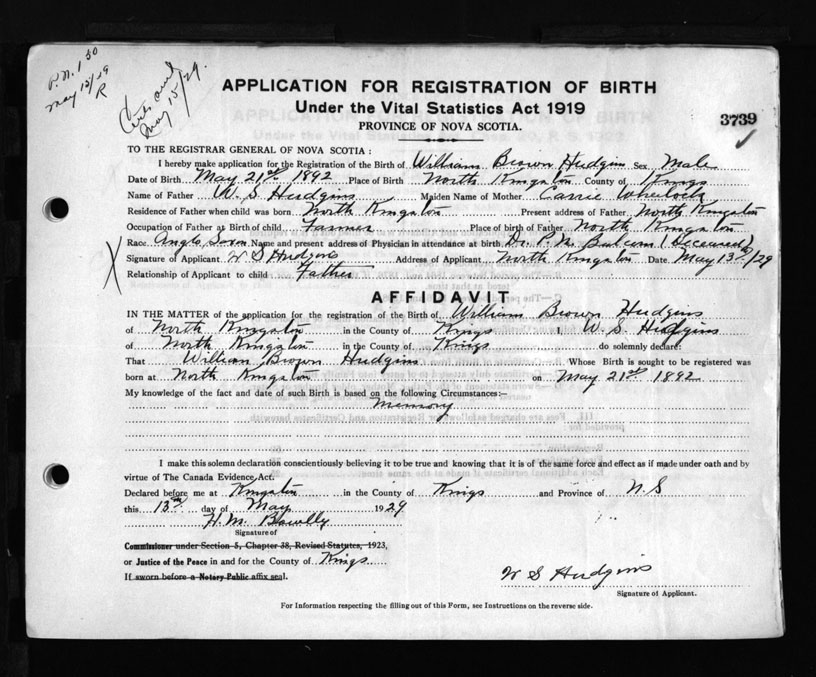 P.N. 1 30
May 15/29
R
Cert. and
May 15/29.
APPLICATION FOR REGISTRATION OF BIRTH
Under the Vital Statistics Act 1919
PROVINCE OF NOVA SCOTIA.
3739
TO THE REGISTRAR GENERAL OF NOVA SCOTIA:
I hereby make application for the Registration of the Birth of William Brown Hudgins Sex Male
Date of Birth May 21st 1892 Place of Birth North Kingston County of Kings
Name of Father W. S. Hudgins Maiden Name of Mother Carrie Wheelock
Residence of Father when child was born North Kingston Present address of Father North Kingston
Occupation of Father at Birth of child Farmer Place of birth of Father North Kingston
Race Anglo Saxon Name and present address of Physician in attendance at birth Dr. P. N. Balcom (Deceased)
Signature of Applicant W S Hudgins Address of Applicant North Kingston Date May 13th/29
Relationship of Applicant to child Father
AFFIDAVIT
IN THE MATTER of the application for the registration of the Birth of William Brown Hudgins
of North Kingston in the County of Kings I, W. S. Hudgins
of North Kingston in the County of Kings do solemnly declare:
That William Brown Hudgins Whose Birth is sought to be registered was
born at North Kingston on May 21st 1892
My knowledge of the fact and date of such Birth is based on the following Circumstances:—
Memory
I make this solemn declaration conscientiously believing it to be true and knowing that it is of the same force and effect as if made under oath and by
virtue of The Canada Evidence Act.
Declared before me at Kingston in the County of Kings and Province of N.S
this 13th day of May 1929
H. M.
Signature of
Commissioner under Section 5, Chapter 38, Revised Statutes, 1923,
or Justice of the Peace in and for the County of Kings
If sworn before a Notary Public affix seal.
W S Hudgins
Signature of Applicant.
For Information respecting the filling out of this Form, see Instructions on the reverse side.